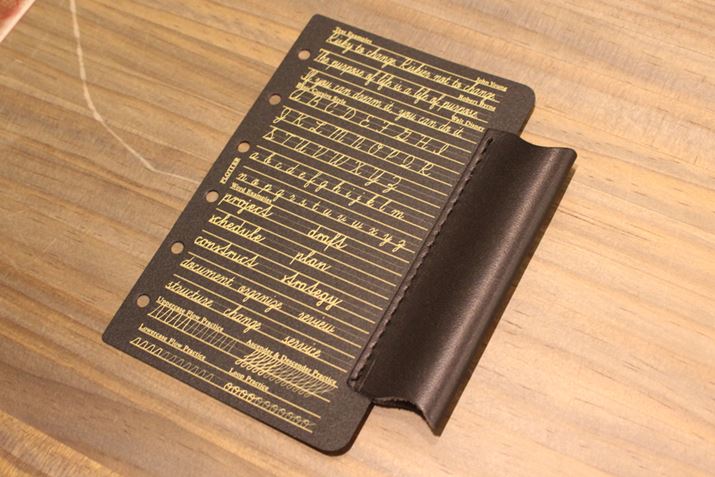 Text Examples
Risky to change Riskier not to change
John Young
The purpose of life is a life of purpose
Robert Byrne
If you can dream it, you can do it
Walt Disney
A B C D E F G H I
J K L M N O P Q R
S T U V W X Y Z
a b c d e f g h i j k l m
n o p q r s t u v w x y z
PLOTTER
Word Examples
project drafts
schedule plan
construct strategy
document organize review
structure change service
Uppercase Flow Practice
Ascender & Descender Practice
Lowercase Flow Practice
Loop Practice